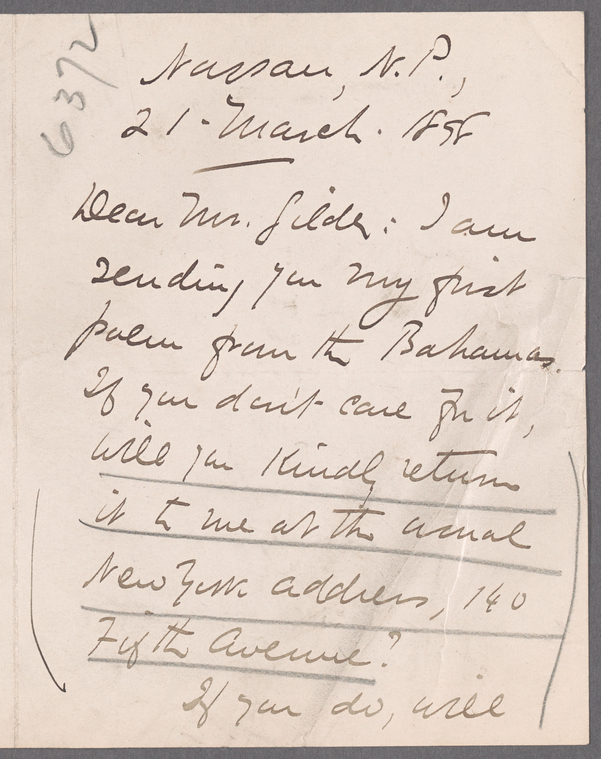 6372
Nassau, N.P.,
21 - March. 1898
Dear Mr. Gilder: I am
sending you my first
poem from the Bahamas.
If you don't care for it,
will you kindly return
it to me at the usual
New York address, 140
Fifth Avenue?
If you do, will